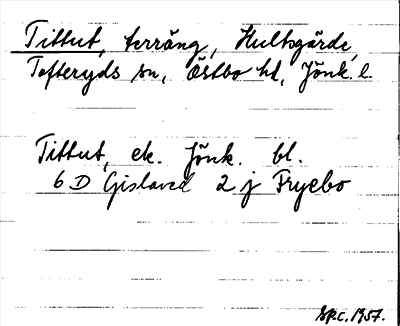 Tittut, terräng, Hultsgärde,
Tofteryds sn, Östbo hd, Jönk. l.
Tittut, ek. Jönk. bl.
6 D Gislaved 2 j Fryebo
1957.